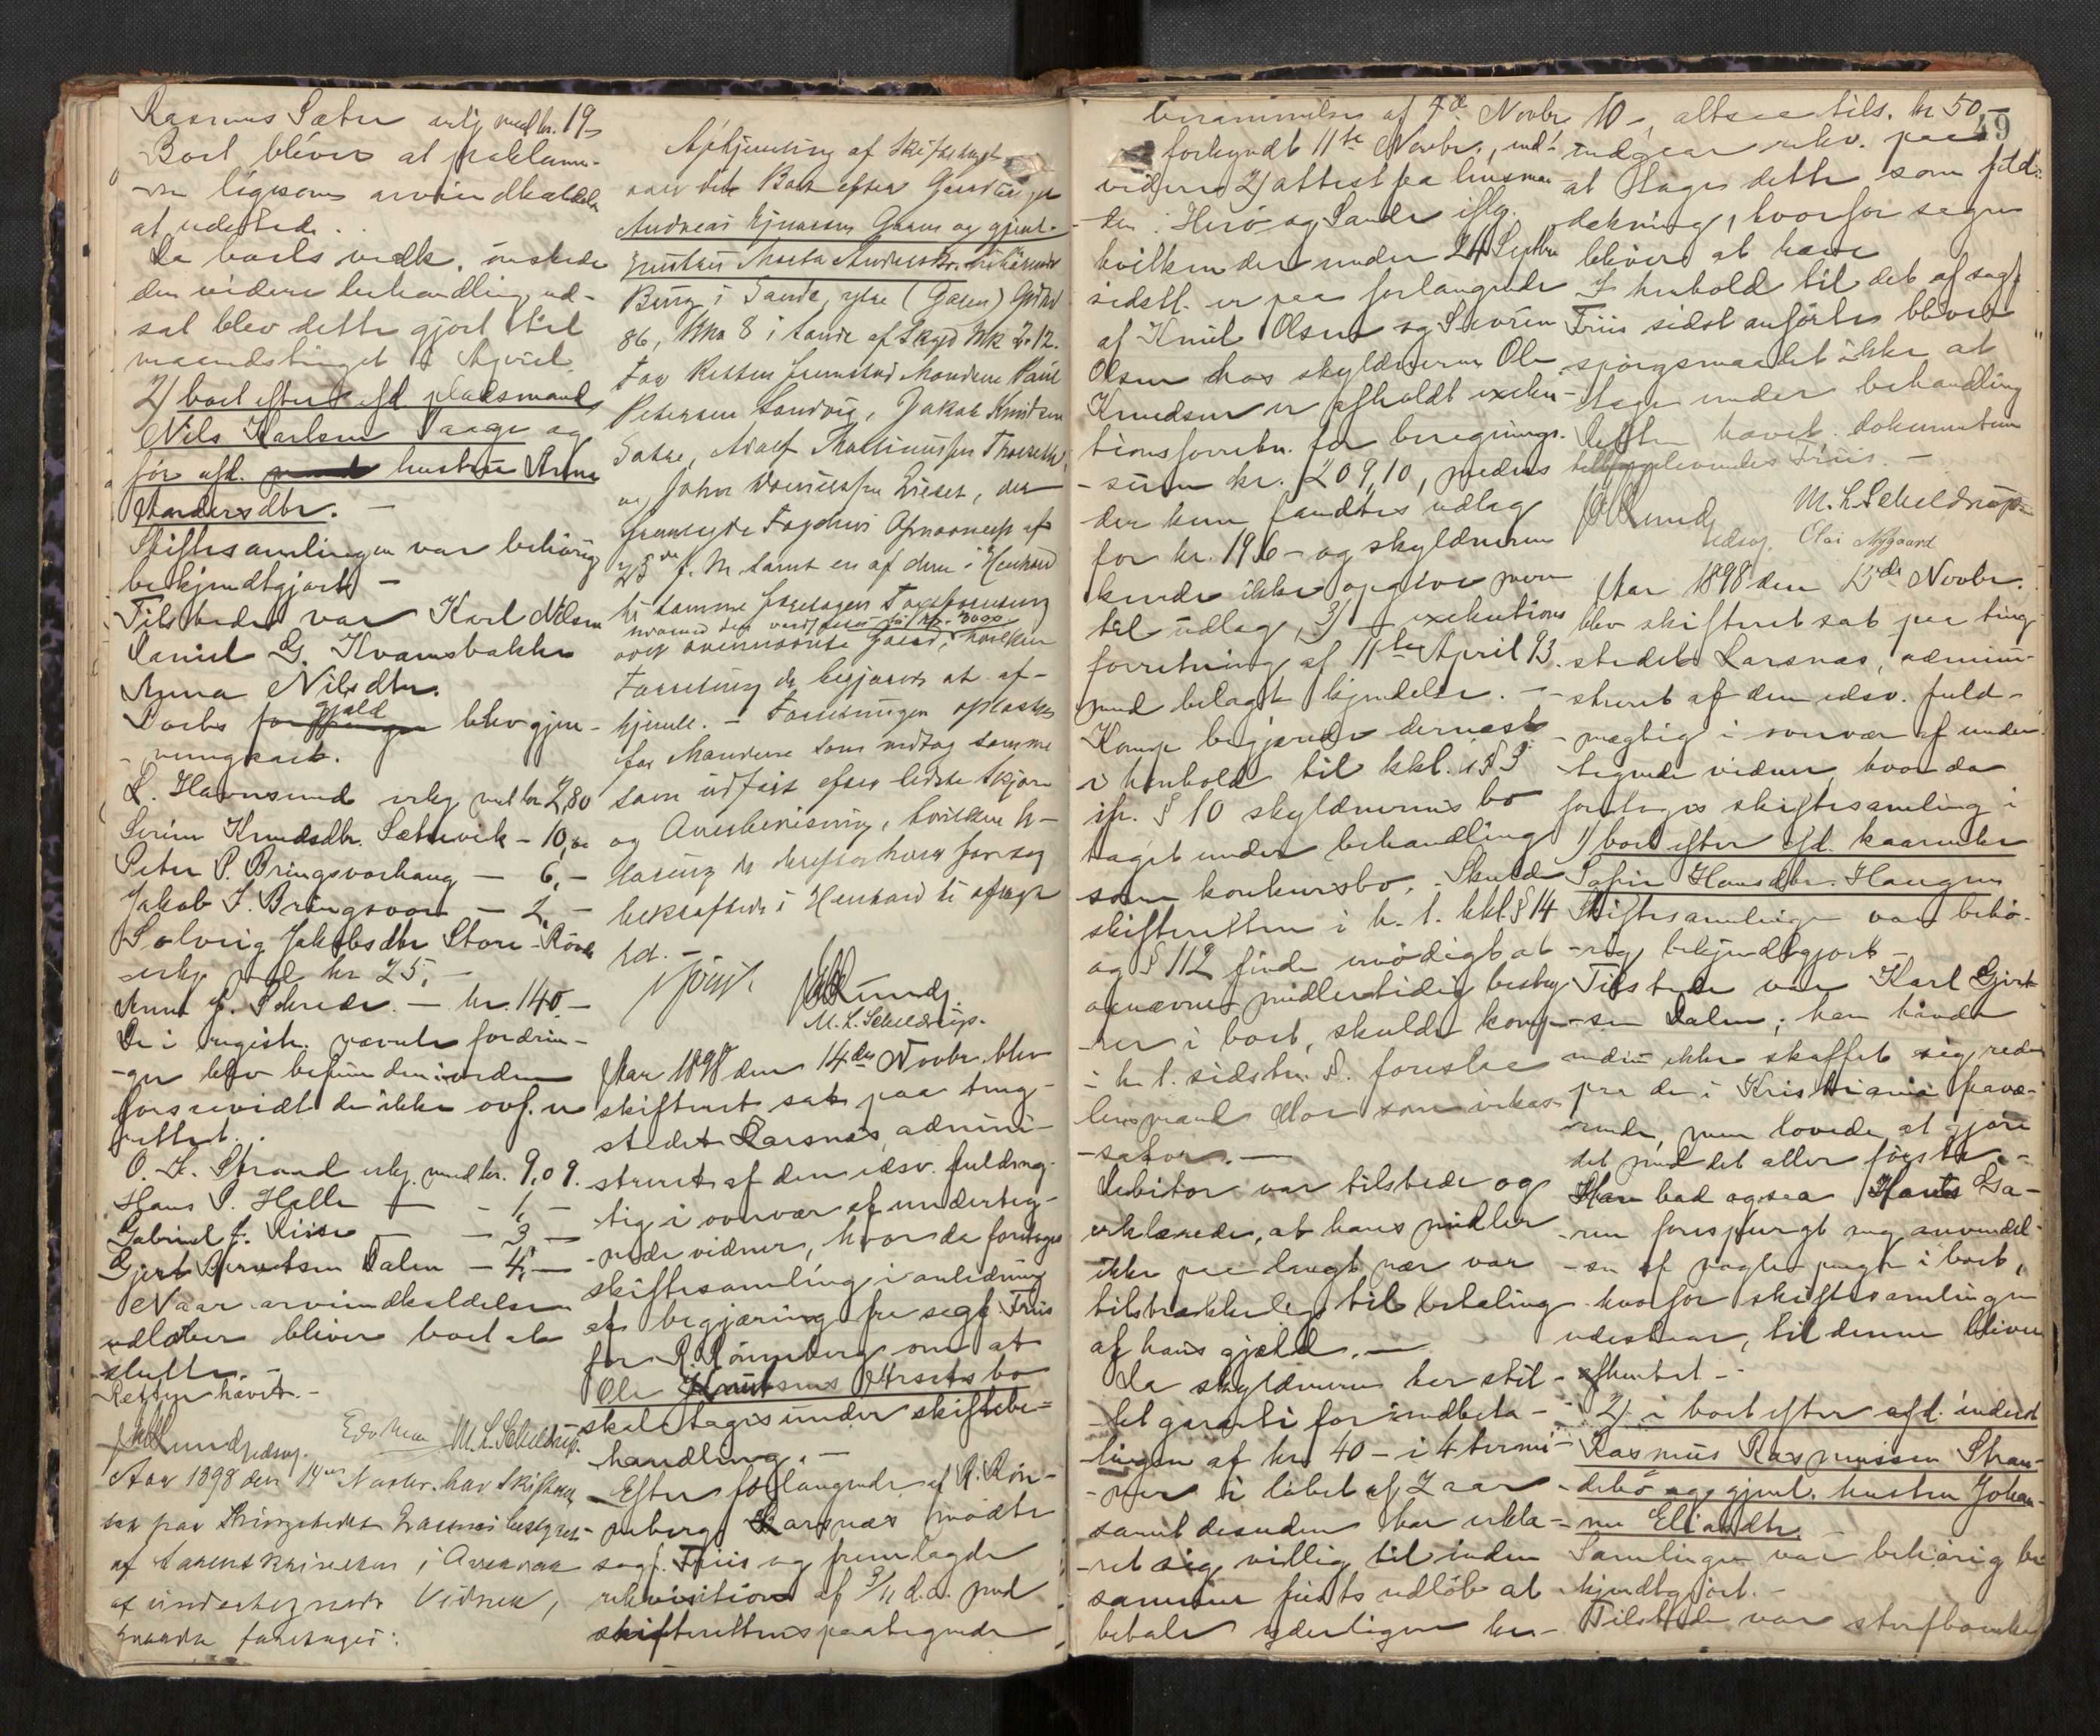 Rasmus Sæter erkj. med kr. 19,-
Boet bliver at proklame-
re ligesom arveindkaldelse
at udstede.
Da boets vedk. ønskede
den videre behandling ud-
sat blev dette gjort til
maanedstinget i April.
2) boet efter afd. pladsmand
Nils Karlsen Saage og
før afd. hustru Anne
Andersdtr. -
Skiftesamlingen var behørig
bekjendtgjort -
Tilstede var Karl Nilsen
Daniel G. Kvamsbakke
Anna Nilsdtr.
Boets gjæld blev gjen-
nemgaaet.
L. Havnsund erkj. med kr. 2,80
Serine Knudsdtr. Sætrevik - 10,00
Peter P. Bringsvorhaug - 6,-
Jakob J. Bringsvor - 2,-
Solveig Jakobsdtr Store-Røvde
erkj. med kr 25,-
Anne J. Schrede. - kr. 140 -
De i registr. nævnte fordrin-
ger blev befundne i orden
forsaavidt de ikke ovf. er
rettet.
O. K. Strand erkj. med kr. 9,09.
Hans P. Halle - - 1, -
Gabriel J. Riise - - 3 -
Gjert Berntsen Dalen - 4, -
Naar arveindkaldelsen
udløber bliver boet at
slutte. -
Retten hævet. -
Lund edsv. M. L. Scheldrup.
Aar 1898 den 14de Novbr. blev Skifteret
sat paa Thingstedet Larsnes bestyret
af Sorenskriveren i Overvær
af undertegnede Vidner,
hvorda foretoges:
Afhjemling af Skiftetaxt
over dit Boet efter Gaardbruger
Andreas Ejnarsen Gaasen og gjenl.
Hustru Marta Andersdtr.
Brug i Sande, ytre (Gaasen) Gdno
86, Bno 8 i Sande af Skyld Mk 2.12.
For Retten fremstod Mændene Paul
Petersen Sandvig, Jakob Knudsen
Sætre, Adolf Martinussen
og John Danielsen Lieset, der
fremlagde Fogdens Opnævnelse af
23de f. M. samt en af dem i Henhold
til samme foretagen Taxtforretning
hvorved den værdsattes til Kr. 3000
over ovennævnte Gaard, hvilken
Forretning de begjærede at af-
hjemle. - Forretningen oplæstes
for Mændene som vedtog samme
som udført efter bedste Skjøn
og Overbevisning, hvilken Er-
klæring de derefter hver for sig
bekræftede i Henhold til aflagt
Ed. -
Lund.
M. L. Scheldrup.
Aar 1898 den 14de Novbr. blev
skifteret sat paa ting-
stedet Larsnes, admini-
streret af den edsv. fuldmæg-
tig i overvær af underteg-
nede vidner, hvor da foretoges
skiftesamling i anledning
af begjæring fra sagf. Friis
for R. Rønneberg om at
Ole Knutsens Aarsets bo
skal tages under skiftebe-
handling. -
Efter forlangende af R. Røn-
neberg Larsnes mødte
sagf. Friis og fremlagde
rekvisition af 3/11 d.a. med
skifterettens paategnede
berammelse af 4de Novbr
forkyndt 11te Novbr., end-
videre 2) attest fra lensman-
den i Herø og Sande iflg.
hvilken der under 24 Septbr
sidstl. er paa forlangende
af Knut Olsen og Severin
Olsen hos skyldneren Ole
Knudsen er afholdt exeku-
tionsforretn. for beregnings-
sum kr. 209,10, medens
der kun fandtes udlæg
for kr. 196 - og skyldneren
kunde ikke opgive mere
til udlæg, 3) exekutions
forretning af 11te April 93.
med belagt kjendelse. -
Komp. begjærede dernæst
i henhold til kkl. § 3
jfr. § 10 skyldnerens bo
taget under behandling
som konkursbo. - Skulde
skifteretten i h. t. kkl § 14
og § 112 finde nødigt at
opnævne midlertidig besty-
rer i boet, skulde komp.
i h. t. sidstn. §. foreslaa
lensmand Moe som inkas-
sator. -
Debitor var tilstede og
erklærede, at hans midler
ikke paa langt nær var
tilstrækkelige til betaling
af hans gjæld. -
Da skyldneren her stil-
let garanti for indbeta-
lingen af kr. 40 - i 4 termi-
ner i løbet af 2 aar
samt desuden har erklæ-
ret sig villig til inden
samme frists udløb at
betale yderligere kr.
10 -, altsaa tils. kr 50 -
49
indgaar rekv. paa
at tage dette som fuld
dækning, hvorfor sagen
bliver at hæve
I henhold til det af sagf.
Friis sidst anførte bliver
spørgsmaalet ikke at
tage under behandling
Retten hævet. dokumenterne
tilbageleveredes Friis. -
Lund M. L. Scheldrup
edsv. Olai Nygaard
Aar 1898 den 15de Novbr.
blev skifteret sat paa ting-
stedet Larsnæs, admini-
streret af den edsv. fuld-
mægtig i overvær af under-
tegnede vidner, hvor da
foretoges skiftesamling i
1) boet efter afd. kaarenke
Sofie Hansdtr. Haugen
Skiftesamlingen var behø-
rig bekjendtgjort -
Tilstede var Karl Gjert-
sen Dalen; han havde
endnu ikke skaffet sig rede
paa den i Kristiania fravæ-
rende, men lovede at gjøre
det med det aller første. -
Han bad ogsaa Hans Ga-
ren forespurgt ang. anvendel-
sen af nogle penge i boet,
hvorfor skiftesamlingen
udestaar, til denne bliver
afhentet -
2) i boet efter afd. inderst
Rasmus Rasmussen Stran-
debø og gjenl. hustru Johan-
ne Eliasdtr.
Samlingen var behørig be-
kjendtgjort. -
Tilstede var sterfboenken